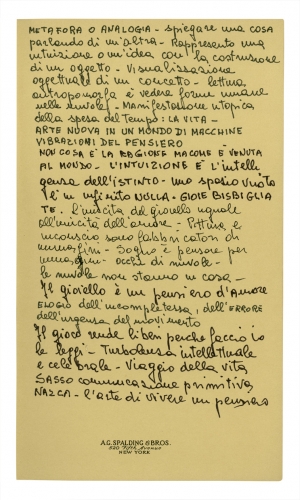 METAFORA O ANALOGIA - spiegare una cosa
parlando di un'altra - Rappresento una
intuizione o un'idea con la costruzione
di un oggetto - Visualizzazione
oggettuale di un concetto - lettura
antropomorfa è vedere forme umane
nelle nuvole - Manifestazione utopica
della spesa del Tempo: LA VITA -
ARTE NUOVA IN UN MONDO DI MACCHINE
VIBRAZIONI DEL PENSIERO
NON COSA È LA REGIONE MA COME È VENUTA
AL MONDO - L'INTUIZIONE È L'intelli
genza dell'ISTINTO - uno spazio vuoto
è un infinito NULLA - GIOIE BISBIGLIA
TE. L'unicità del gioiello uguale
all'unicità dell'amore - Pittura e
inconscio sono fabbricatori di
immagini - Sogno è pensare per
immagini - occhi di nuvole -
le nuvole non stanno in casa -
Il gioiello è un pensiero d'Amore
ELOGIO dell'incompletezza, dell'ERRORE
dell'urgenza del movimento
Il gioco rende liberi perche faccio io
le leggi - Turbolenza intellettuale
e cerebrale - Viaggio della vita
SASSO comunicazione primitiva
NAZCA - l'arte di vivere un pensiero
A.G. SPALDING & BROS.
520 Fifth Avenue
NEW YORK